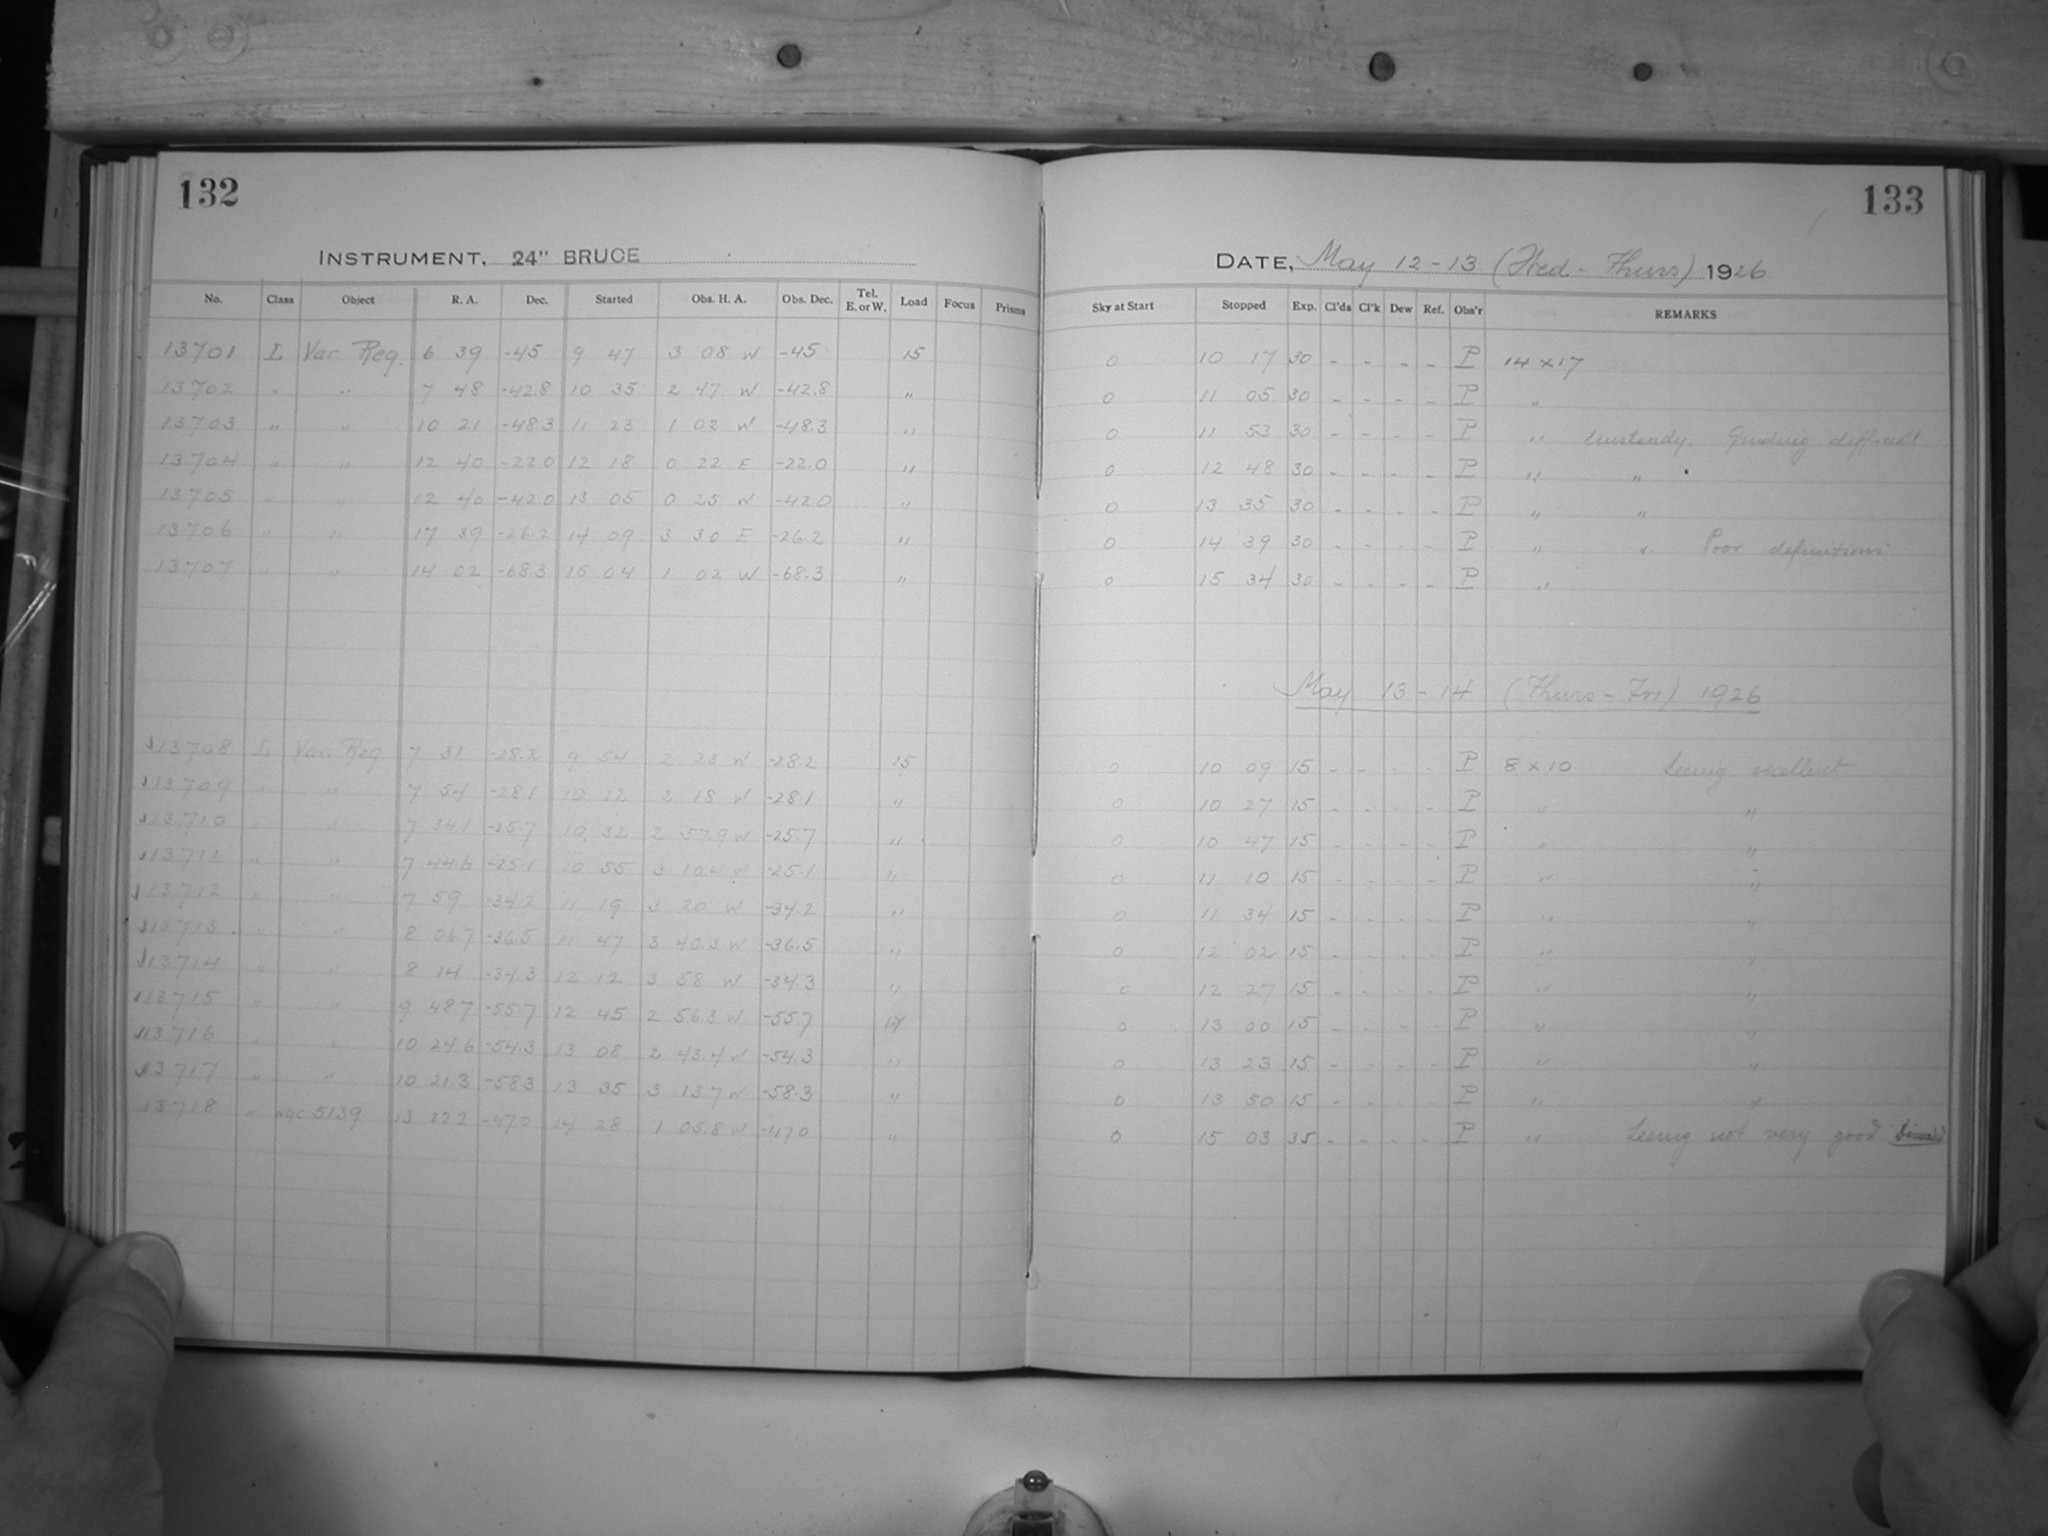 132
INSTRUMENT, 24" BRUCE
No. Class Object R. A. Dec. Started Obs. H. A. Obs. Dec. Tel. E. or W. Load Focus Prisms
13701 L Var. Reg. 6 39 -45 9 47 3 08 W -45 15
13702 " " 7 48 -42.8 10 35 2 47 W -42.8 "
13703 " " 10 21 -48.3 11 23 1 02 W -48.3 "
13704 " " 12 40 -22.0 12 18 0 22 E -22.0 "
13705 " " 12 40 -42.0 13 05 0 25 W -42.0 "
13706 " " 17 39 -26.2 14 09 3 30 E -26.2 "
13707 " " 14 02 -68.3 15 04 1 02 W -68.3 "
13708 L Var. Reg 7 31 -28.2 9 54 2 23 W -28.2 15
13709 " " 7 54 -28.1 10 12 2 18 W -28.1 "
13710 " " 7 34.1 -25.7 10 32 2 57.9 W -25.7 "
13711 " " 7 44.6 -25.1 10 55 3 10.4 W -25.1 "
13712 " " 7 59 -34.2 11 19 3 20 W -34.2 "
13713 " " 8 06.7 -36.5 11 47 3 40.3 W -36.5 "
13714 " " 8 14 -34.3 12 12 3 58 W -34.3 "
13715 " " 9 48.7 -55.7 12 45 2 56.3 W -55.7
13716 " " 10 24.6 -54.3 13 08 2 43.4 W -54.3 "
13717 " " 10 21.3 -58.3 13 35 3 13.7 W -58.3 "
13718 " NGC 5139 13 22.2 -47.0 14 28 1 05.8 W -47.0 "
133
DATE, May 12-13 (Wed - Thurs) 1926
Sky at Start Stopped Exp. Cl'ds Cl'k Dew Ref. Obs'r REMARKS
0 10 17 30 - - - - P 14 x 17
0 11 05 30 - - - - P "
0 11 53 30 - - - - P " Unsteady. Guiding difficult
0 12 48 30 - - - - P " "
0 13 35 30 - - - - P " "
0 14 39 30 - - - - P " " Poor definition
0 15 34 30 - - - - P "
May 13-14 (Thurs - Fri) 1926
0 10 09 15 - - - - P 8 x 10 Seeing excellent
0 10 27 15 - - - - P " "
0 10 47 15 - - - - P " "
0 11 10 15 - - - - P " "
0 11 34 15 - - - - P " "
0 12 02 15 - - - - P " "
0 12 27 15 - - - - P " "
0 13 00 15 - - - - P " "
0 13 23 15 - - - - P " "
0 13 50 15 - - - - P " "
0 15 03 35 - - - - P " Seeing not very good